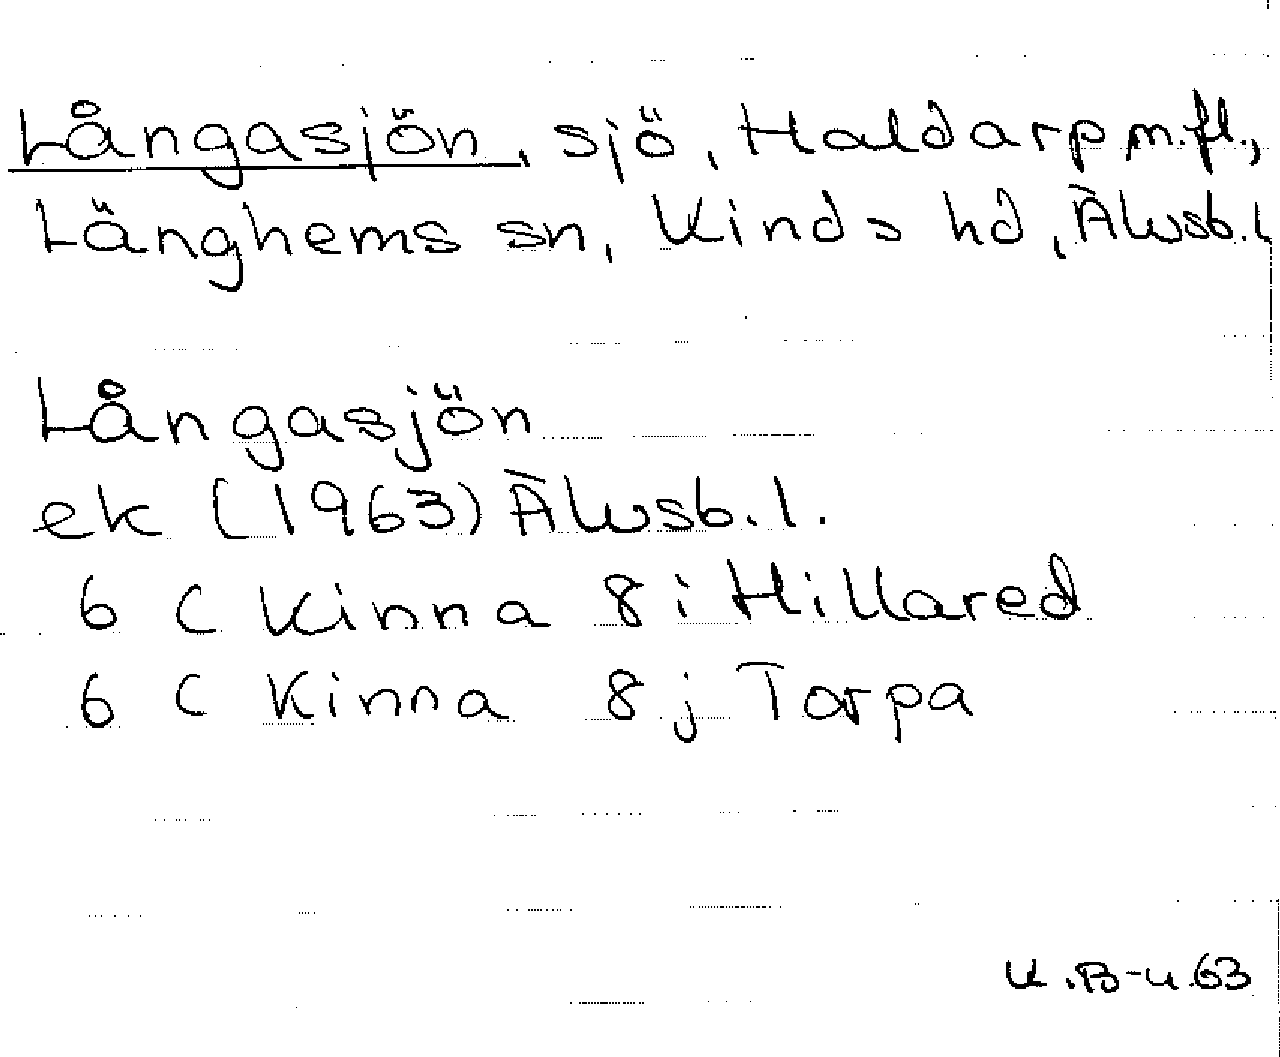 Långasjön, sjö, Haldarp m.fl.,
Länghems sn, Kinds hd, Älvsb. l
Långasjön
ek (1963) Älvsb. l.
6 C Kinna 8 i Hillared
6 C Kinna 8 j Torpa
K.B-u.63